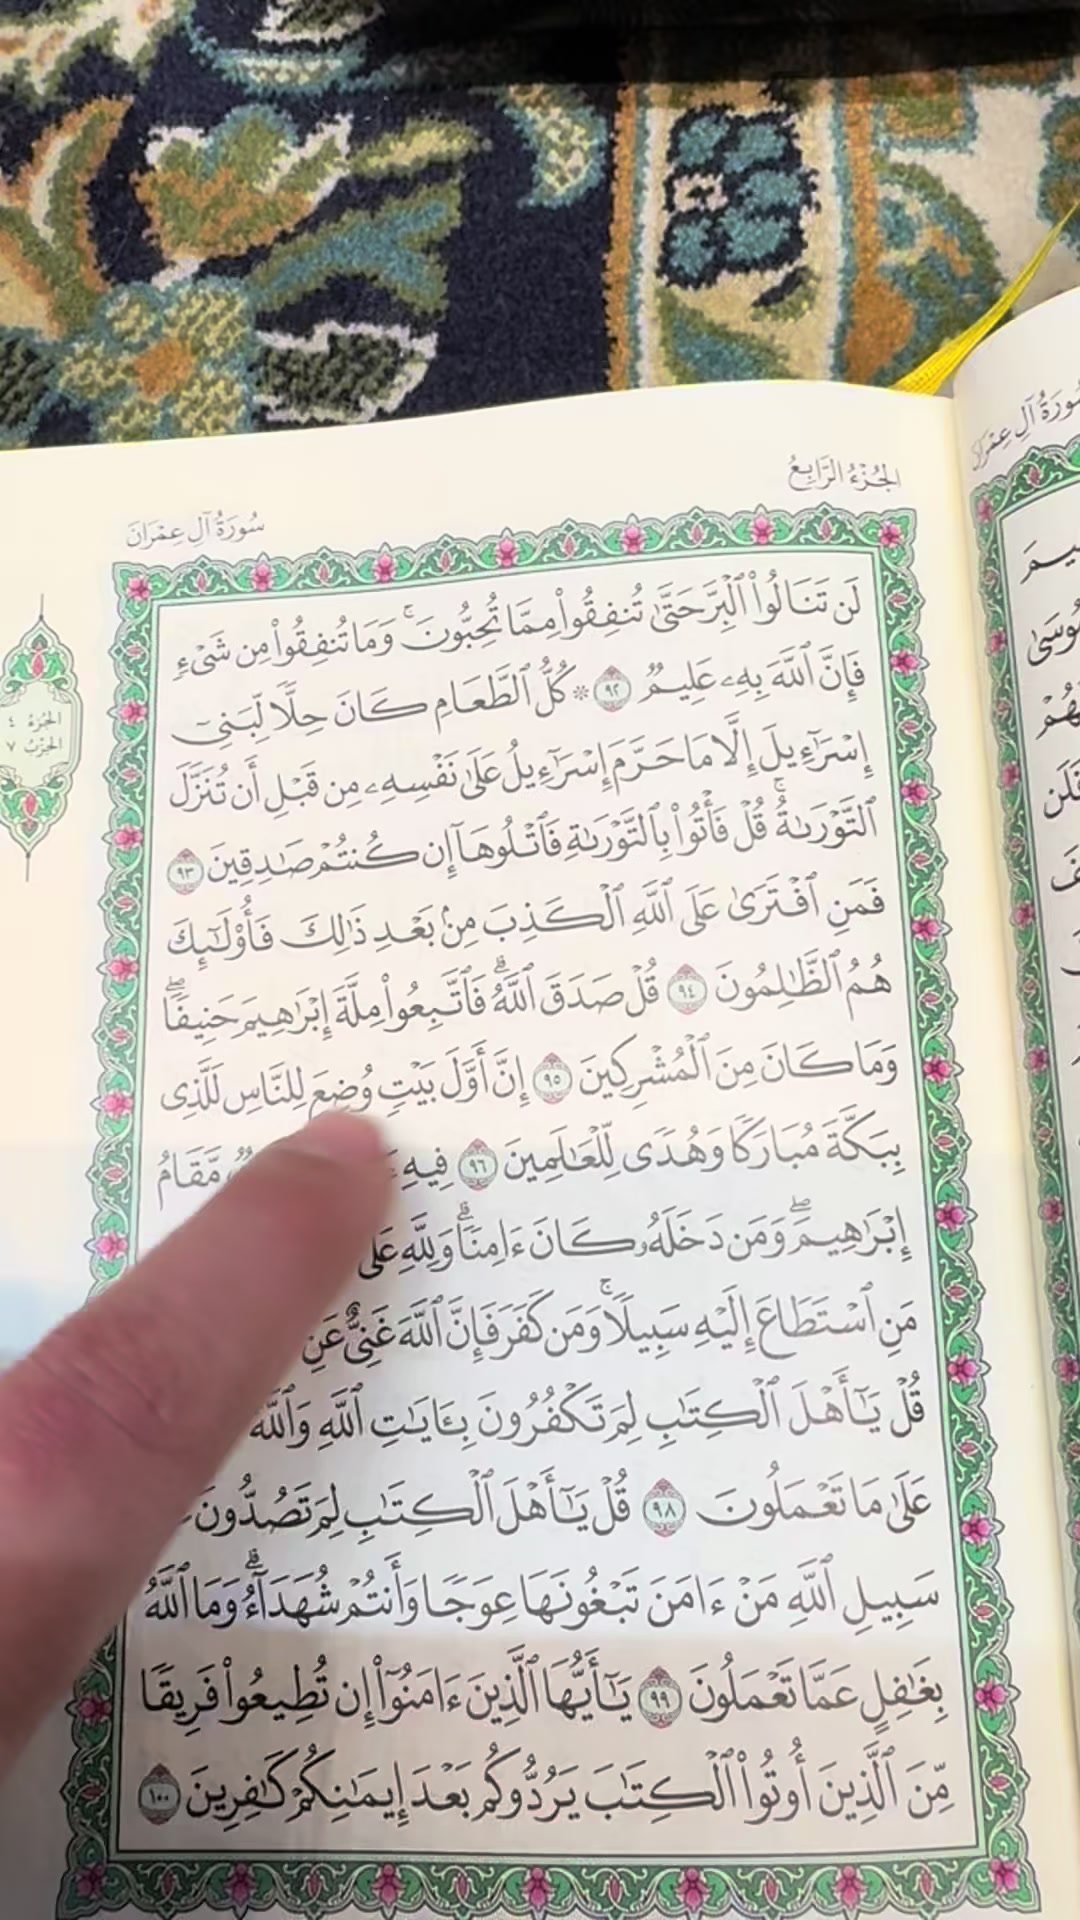 سُورَةُ آلِ عِمْرَانَ
الجُزْءُ الرَّابِعُ
لَن تَنَالُوا۟ ٱلْبِرَّ حَتَّىٰ تُنفِقُوا۟ مِمَّا تُحِبُّونَ ۚ وَمَا تُنفِقُوا۟ مِن شَىْءٍ
فَإِنَّ ٱللَّهَ بِهِۦ عَلِيمٌ ٩٢ * كُلُّ ٱلطَّعَامِ كَانَ حِلًّا لِّبَنِىٓ
إِسْرَٰٓءِيلَ إِلَّا مَا حَرَّمَ إِسْرَٰٓءِيلُ عَلَىٰ نَفْسِهِۦ مِن قَبْلِ أَن تُنَزَّلَ
ٱلتَّوْرَىٰةُ ۚ قُلْ فَأْتُوا۟ بِٱلتَّوْرَىٰةِ فَٱتْلُوهَآ إِن كُنتُمْ صَٰدِقِينَ ٩٣
فَمَنِ ٱفْتَرَىٰ عَلَى ٱللَّهِ ٱلْكَذِبَ مِنۢ بَعْدِ ذَٰلِكَ فَأُو۟لَٰٓئِكَ
هُمُ ٱلظَّٰلِمُونَ ٩٤ قُلْ صَدَقَ ٱللَّهُ ۗ فَٱتَّبِعُوا۟ مِلَّةَ إِبْرَٰهِيمَ حَنِيفًا ۖ
وَمَا كَانَ مِنَ ٱلْمُشْرِكِينَ ٩٥ إِنَّ أَوَّلَ بَيْتٍ وُضِعَ لِلنَّاسِ لَلَّذِى
بِبَكَّةَ مُبَارَكًا وَهُدًى لِّلْعَٰلَمِينَ ٩٦ فِيهِ مَّقَامُ
إِبْرَٰهِيمَ ۖ وَمَن دَخَلَهُۥ كَانَ ءَامِنًا ۗ وَلِلَّهِ عَلَى
مَنِ ٱسْتَطَاعَ إِلَيْهِ سَبِيلًا ۚ وَمَن كَفَرَ فَإِنَّ ٱللَّهَ غَنِىٌّ عَنِ
قُلْ يَٰٓأَهْلَ ٱلْكِتَٰبِ لِمَ تَكْفُرُونَ بِـَٔايَٰتِ ٱللَّهِ وَٱللَّهُ
عَلَىٰ مَا تَعْمَلُونَ ٩٨ قُلْ يَٰٓأَهْلَ ٱلْكِتَٰبِ لِمَ تَصُدُّونَ
سَبِيلِ ٱللَّهِ مَنْ ءَامَنَ تَبْغُونَهَا عِوَجًا وَأَنتُمْ شُهَدَآءُ ۗ وَمَا ٱللَّهُ
بِغَٰفِلٍ عَمَّا تَعْمَلُونَ ٩٩ يَٰٓأَيُّهَا ٱلَّذِينَ ءَامَنُوٓا۟ إِن تُطِيعُوا۟ فَرِيقًا
مِّنَ ٱلَّذِينَ أُوتُوا۟ ٱلْكِتَٰبَ يَرُدُّوكُم بَعْدَ إِيمَٰنِكُمْ كَٰفِرِينَ ١٠٠
الجُزْءُ ٤
الحِزْبُ ٧
سُورَةُ آلِ عِمْرَانَ